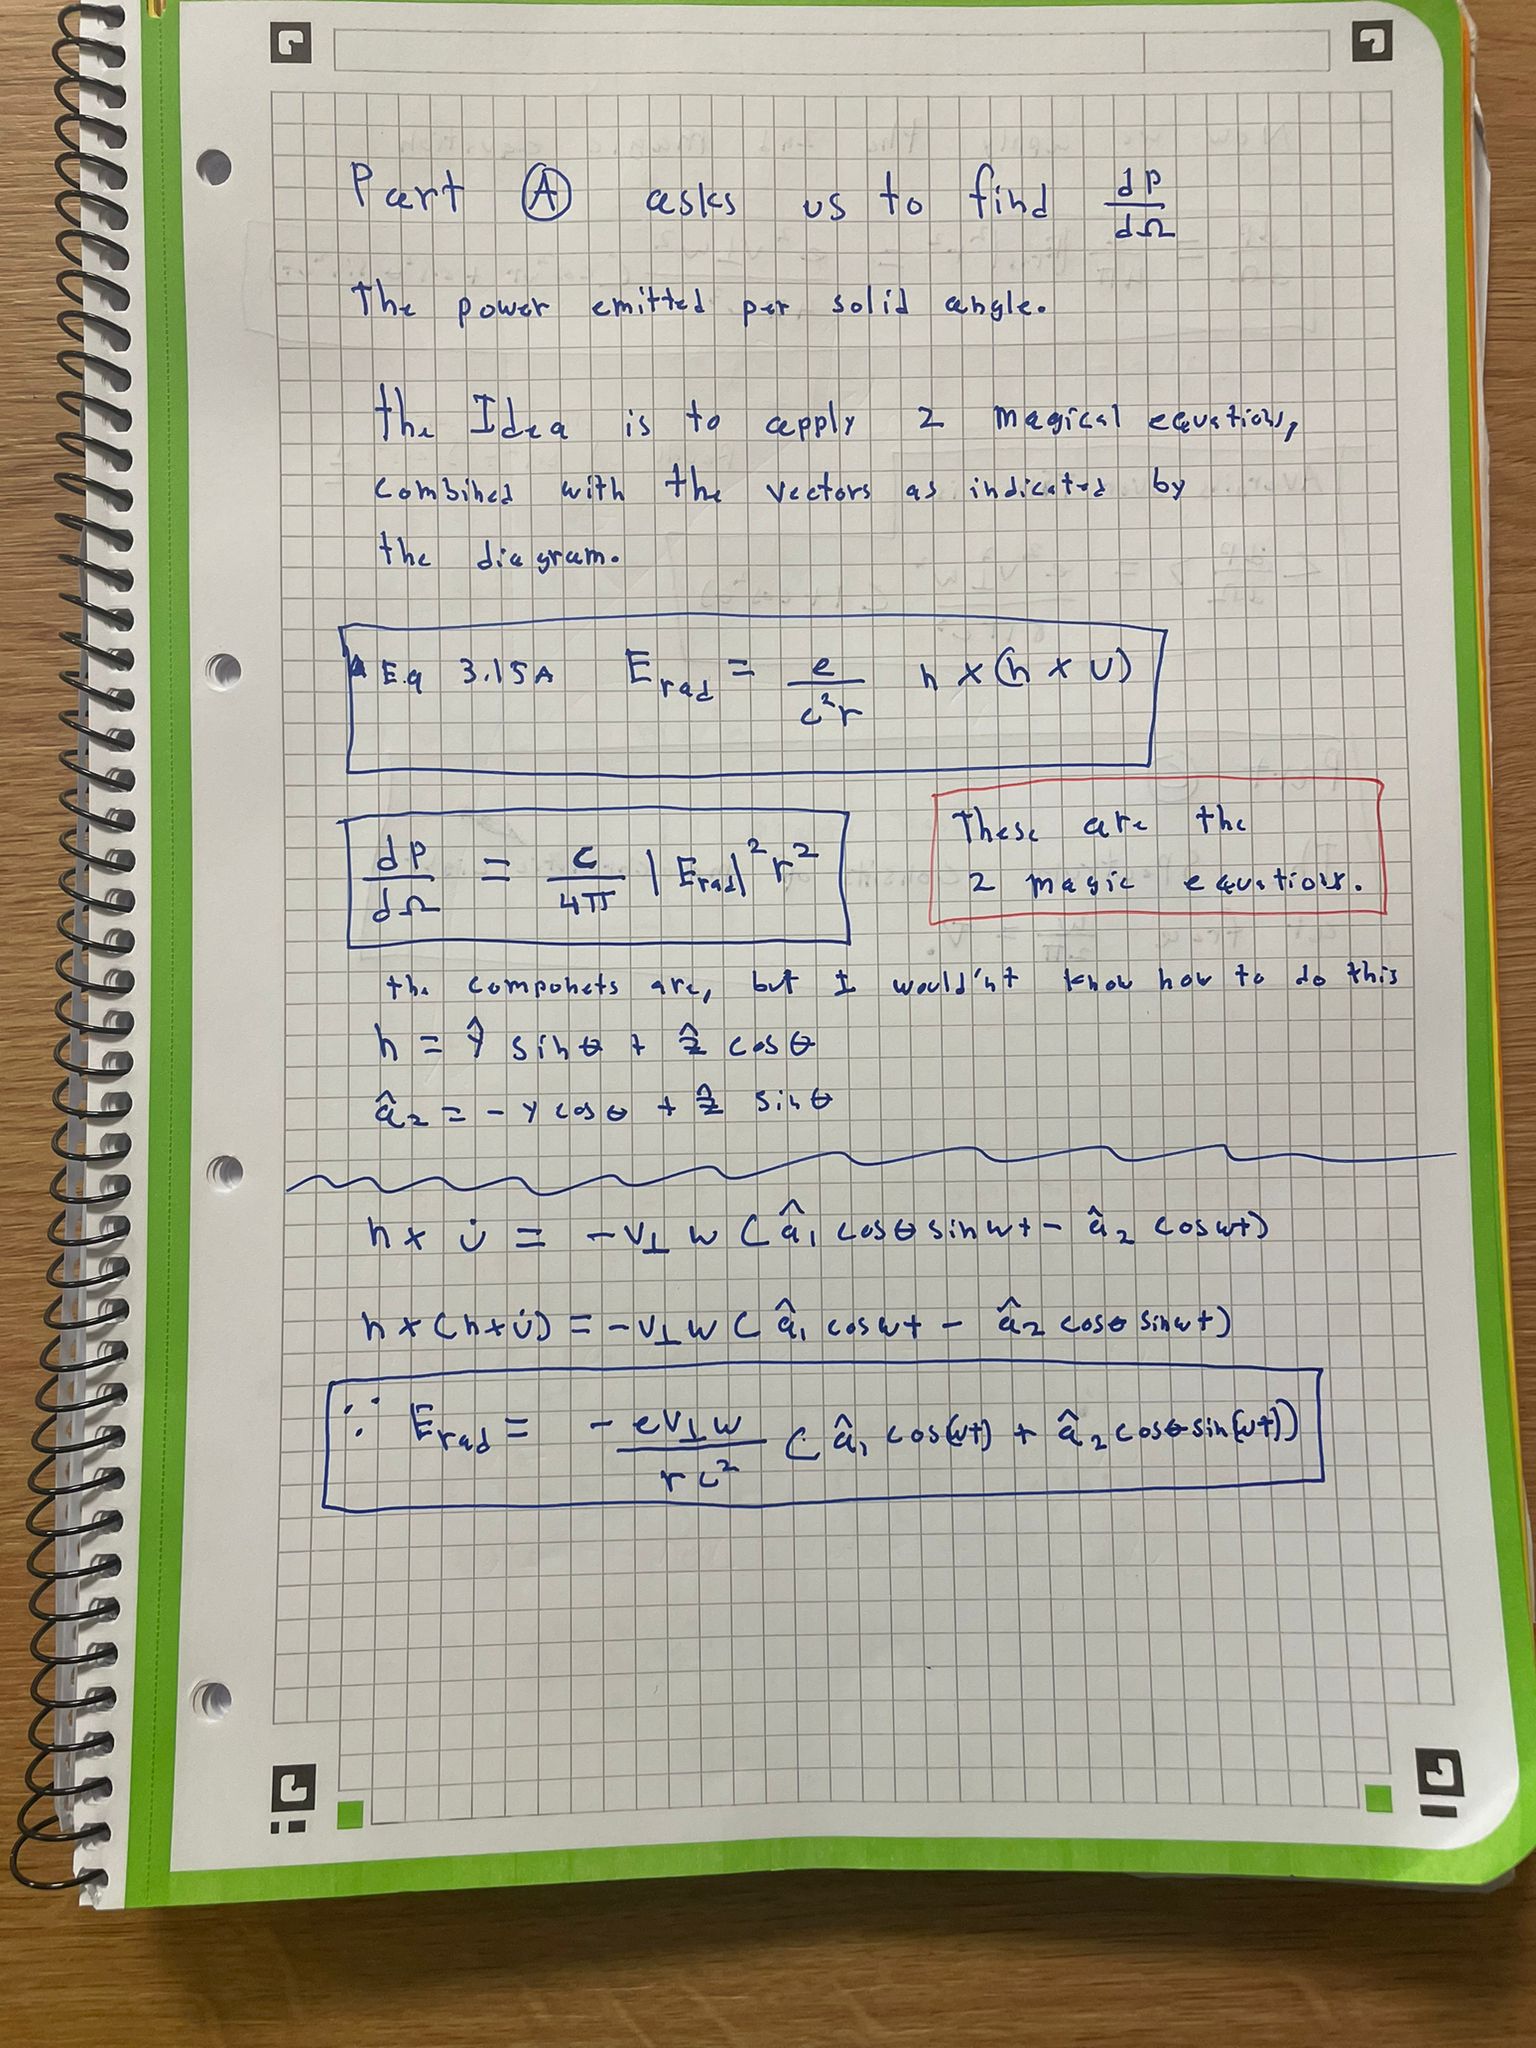 Part Ⓐ asks us to find dP/dΩ
the power emitted per solid angle.
the Idea is to apply 2 magical equations,
combined with the vectors as indicated by
the diagram.
Eq 3.15A E_rad = e/(c²r) n × (n × U)
dP/dΩ = c/4π |E_rad|² r²
These are the
2 magic equations.
the componets are, but I would'nt know how to do this
n = ŷ sinθ + ẑ cosθ
â₂ = - y cosθ + ẑ sinθ
n × u̇ = -v⊥ w (â₁ cosθ sin wt - â₂ cos wt)
n × (n × u̇) = -v⊥ w (â₁ cos wt - â₂ cosθ sin wt)
∵ E_rad = - e v⊥ w/(r c²) (â₁ cos(wt) + â₂ cosθ sin(wt))